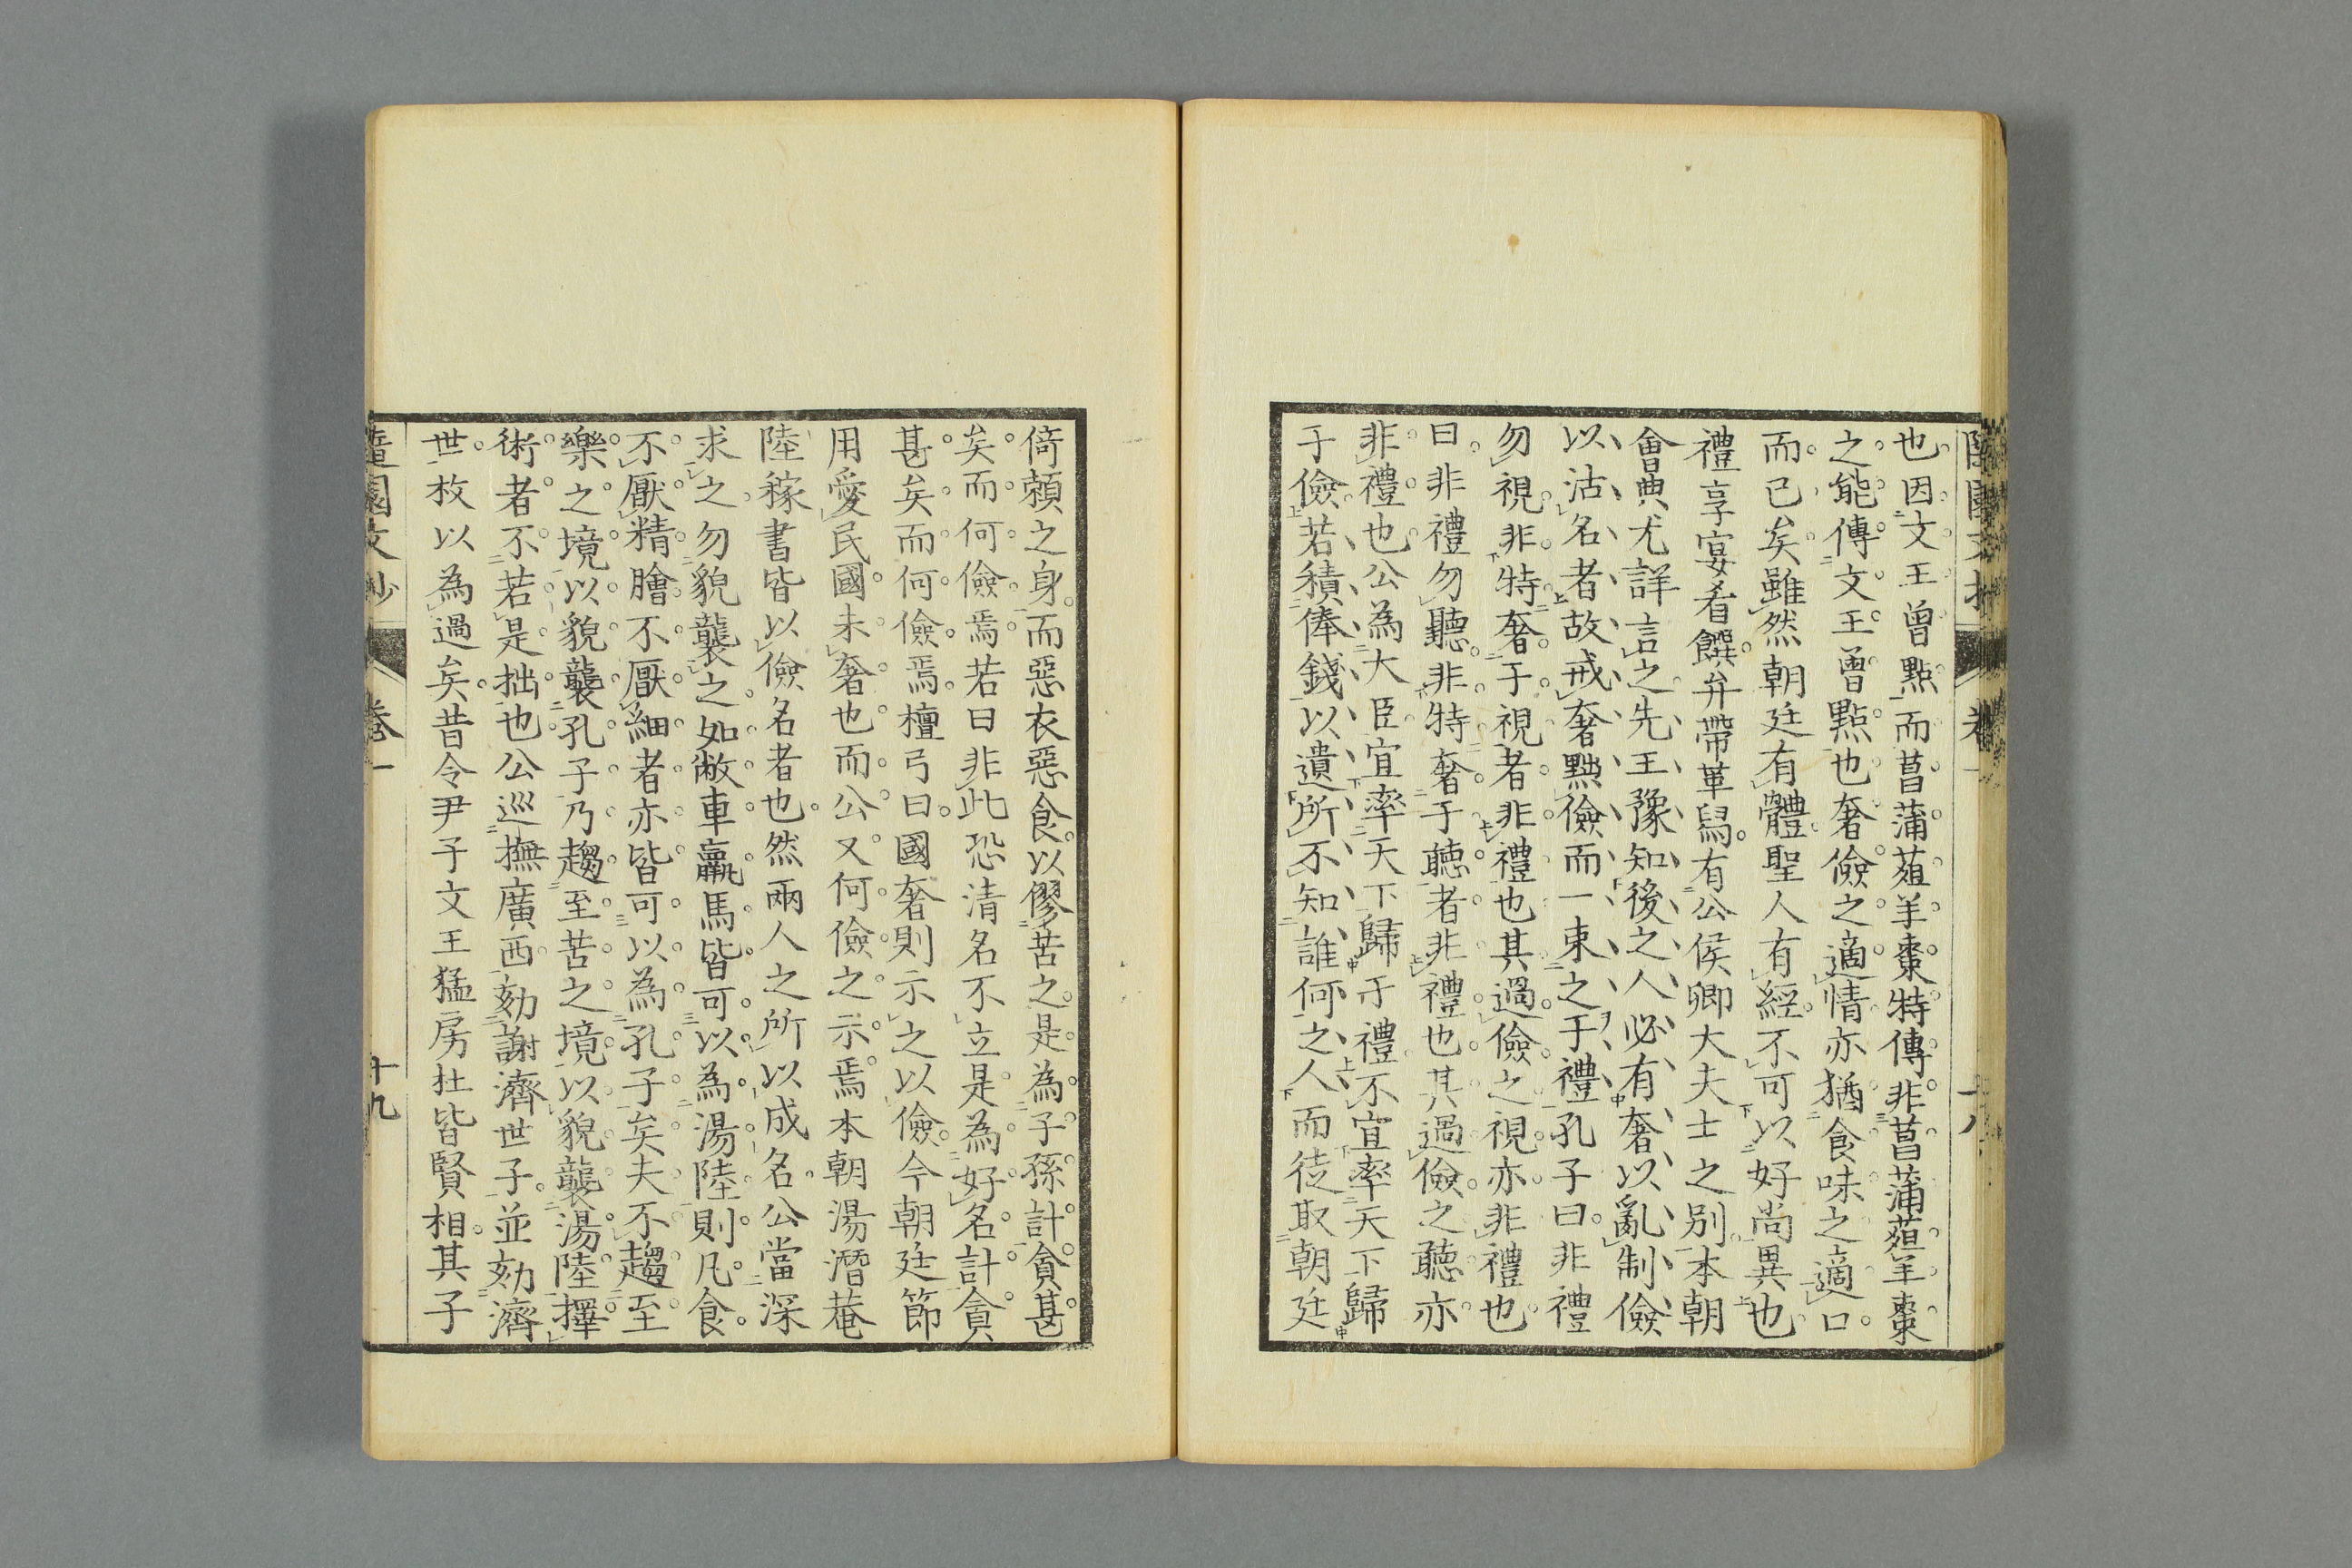 也因文王曾點而菖蒲葅羊棗特傳非菖蒲葅羊棗
之能傳文王曾點也奢儉之適情亦猶食味之適口
而已矣雖然朝廷有體聖人有經不可以好尚異也
禮享宴肴饌弁帶革舄有公侯卿大夫士之別本朝
會典尤詳言之先王豫知後之人必有奢以亂制儉
以沽名者故戒奢黜儉而一束之于禮孔子曰非禮
勿視非特奢于視者非禮也其過儉之視亦非禮也
曰非禮勿聽非特奢于聽者非禮也其過儉之聽亦
非禮也公為大臣宜率天下歸于禮不宜率天下歸
于儉若積俸錢以遺所不知誰何之人而徒取朝廷
倚賴之身而惡衣惡食以僇苦之是為子孫計貪甚
矣而何儉焉若曰非此恐清名不立是為好名計貪
甚矣而何儉焉檀弓曰國奢則示之以儉今朝廷節
用愛民國未奢也而公又何儉之示焉本朝湯潛菴
陸稼書皆以儉名者也然兩人之所以成名公當深
求之勿貌襲之如敝車羸馬皆可以為湯陸則凡食
不厭精膾不厭細者亦皆可以為孔子矣夫不趨至
樂之境以貌襲孔子乃趨至苦之境以貌襲湯陸擇
術者不若是拙也公巡撫廣西劾謝濟世子並劾濟
世枚以為過矣昔令尹子文王猛房杜皆賢相其子
園文抄 卷一 十九